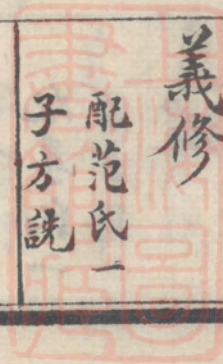 義修
配范氏一
子方說